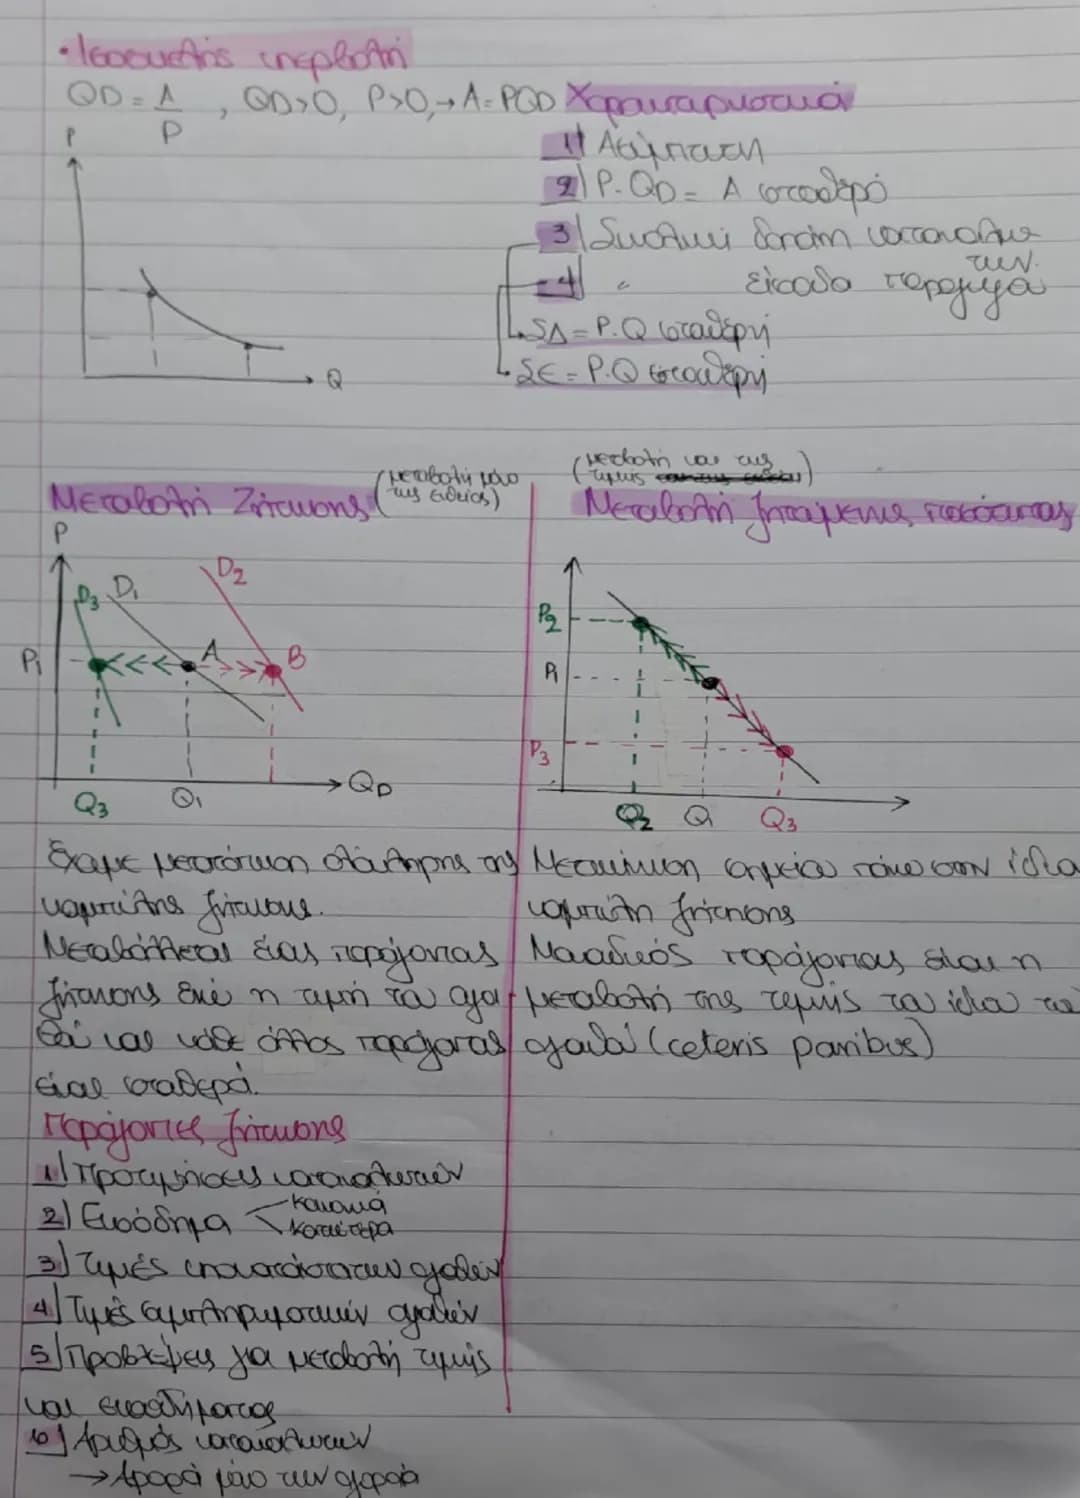 • Ισοσκελής υπερβολή
QD = A/P , QD>0, P>0, → A = PQD Χαρακτηριστικά
1) Ασύμπτωτη
2) P·QD = A σταθερό
3) Συνολική δαπάνη καταναλω
των.
4) " έσοδα παραγωγώ
ΣΔ = P·Q σταθερή
ΣΕ = P·Q σταθερή
P
Q
Μεταβολή Ζήτησης (μεταβολή μόνο
της ευθείας)
(μεταβολή και της
τιμής)
Μεταβολή ζητούμενης ποσότητας
P
D3 D1 D2
P1 A B
Q3 Q1 QD
P2
P1
P3
Q2 Q1 Q3
Έχουμε μετατόπιση ολόκληρης της
καμπύλης ζήτησης.
Μεταβάλλεται ένας παράγοντας
ζήτησης ενώ η τιμή του αγα
θού και κάθε άλλος παράγοντας
είναι σταθερά.
Μετακίνηση σημείου πάνω στην ίδια
καμπύλη ζήτησης
Μοναδικός παράγοντας είναι η
μεταβολή της τιμής του ίδιου του
αγαθού (ceteris paribus)
Παράγοντες ζήτησης
1) Προτιμήσεις καταναλωτών
2) Εισόδημα κανονικά
κατώτερα
3) Τιμές υποκατάστατων αγαθών
4) Τιμές συμπληρωματικών αγαθών
5) Προβλέψεις για μεταβολή τιμής
και εισοδήματος
6) Αριθμός καταναλωτών
→ Αφορά μόνο την αγορά